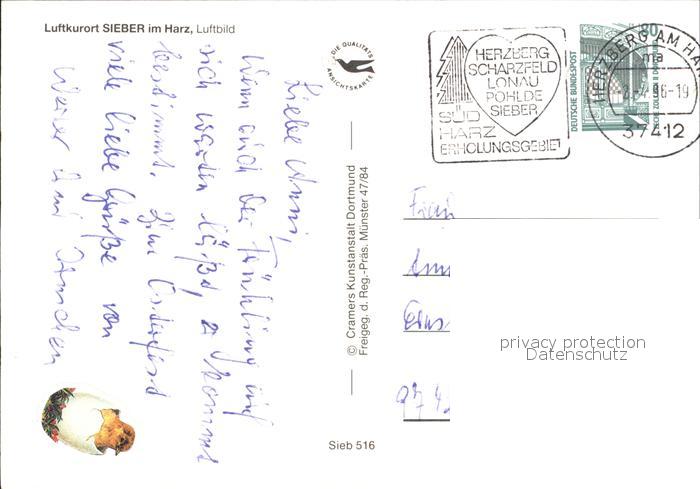 Luftkurort SIEBER im Harz, Luftbild
DIE QUALITÄTS
ANSICHTSKARTE
HERZBERG
SCHARZFELD
LONAU
PÖHLDE
SIEBER
SÜD
HARZ
ERHOLUNGSGEBIET
DEUTSCHE BUNDESPOST
80
HERZBERG AM HA
ma
96-19
37412
Liebe Anni,
Wenn auch der Frühling auf
sich warten läßt, er kommt
bestimmt. Zum Osterfest
viele liebe Grüße von
Werner und Ännchen
© Cramers Kunstanstalt Dortmund
Freigeg. d. Reg.-Präs. Münster 47/84
Frau
privacy protection
Datenschutz
Sieb 516